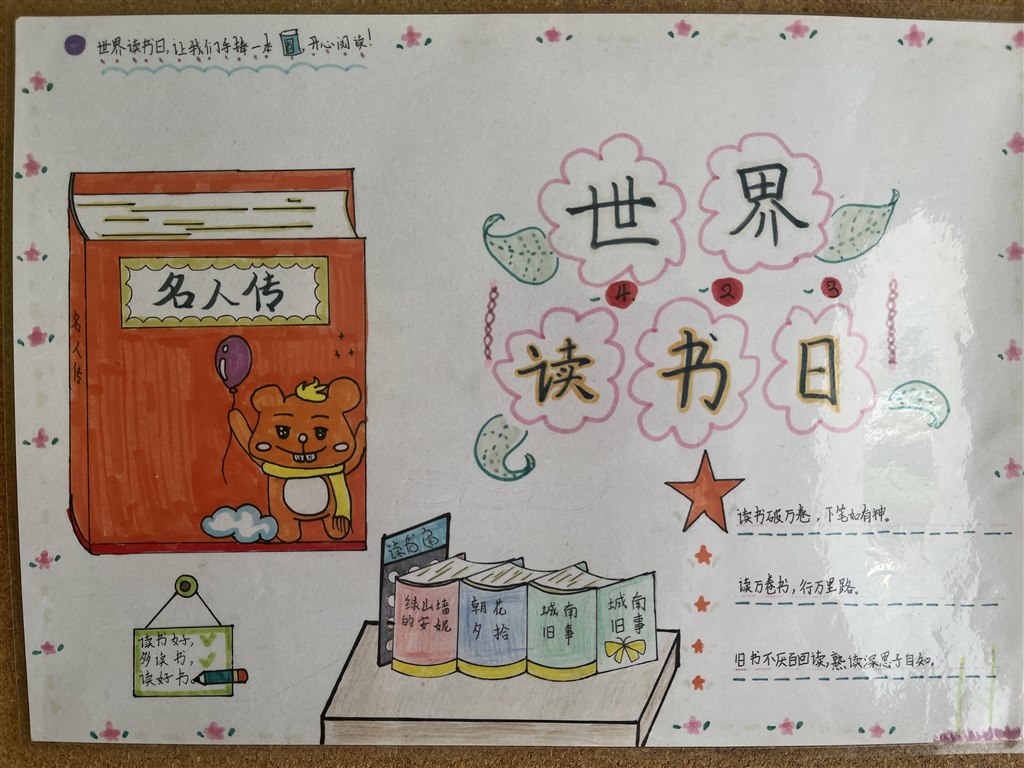 世界读书日,让我们手捧一本 ,开心阅读!
世界
4. 2 3
读书日
名人传
名人传
读书破万卷,下笔如有神。
读万卷书,行万里路。
旧书不厌百回读,熟读深思子自知。
读书角
绿山墙
的安妮
朝花
夕拾
城南
旧事
城南
旧事
读书好,
多读书,
读好书。